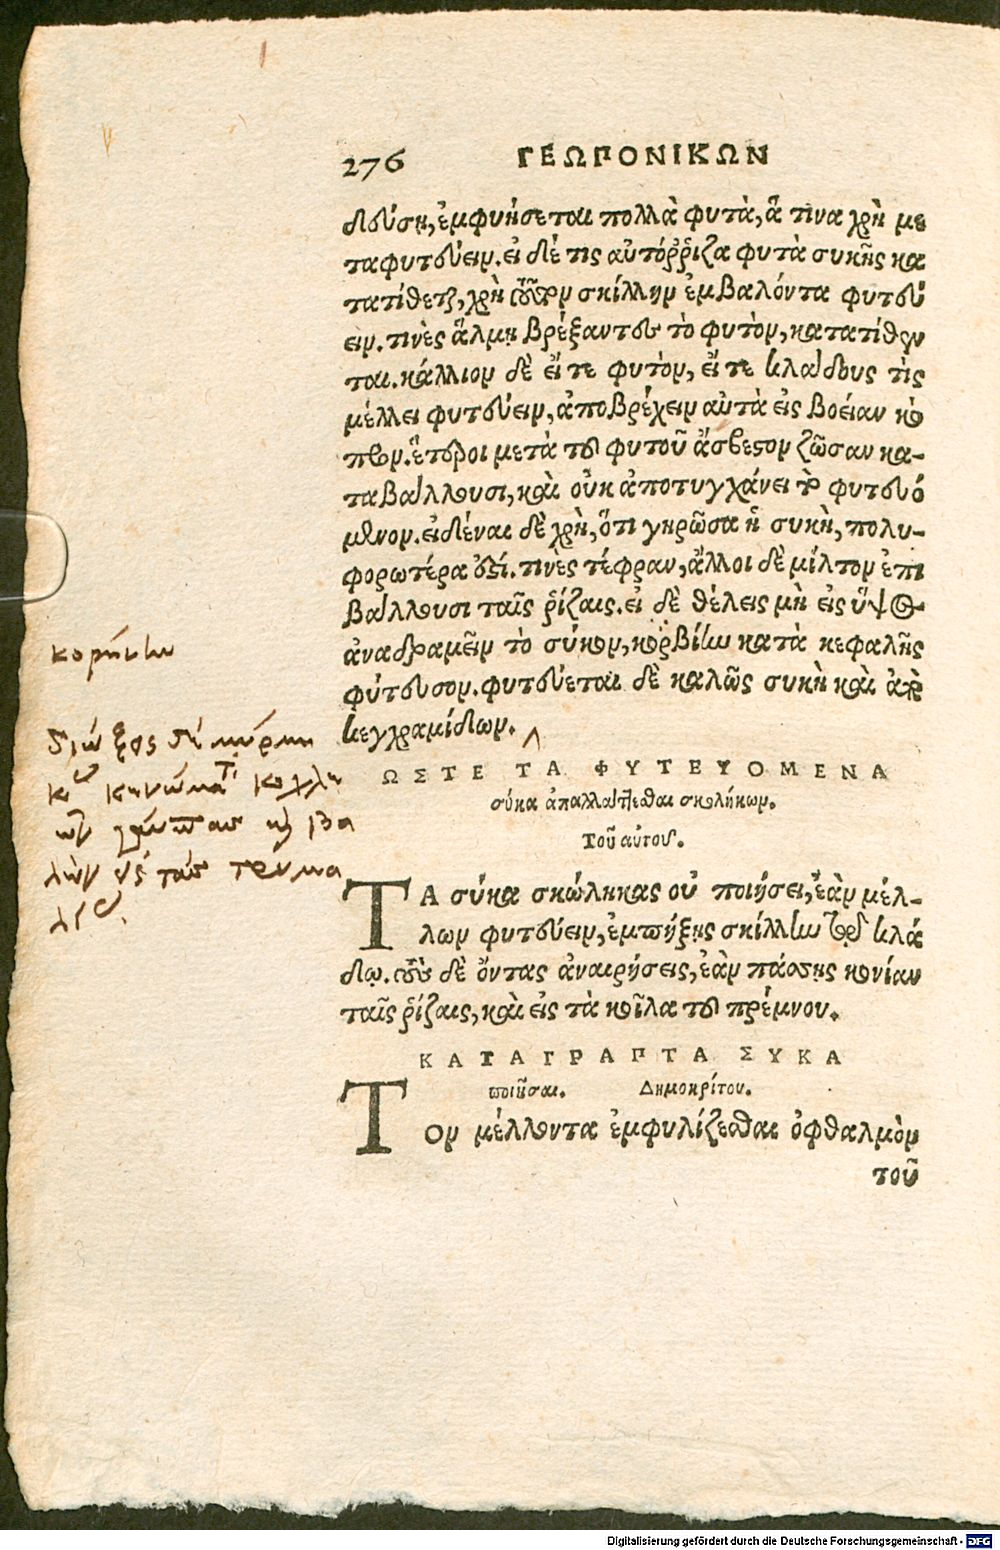 276 ΓΕΩΠΟΝΙΚΩΝ
δεύσῃ, ἐμφυήσεται πολλὰ φυτὰ, ἅ τινα χρὴ με
ταφυτεύειν. εἰ δέ τις αὐτόῤῥιζα φυτὰ συκῆς κα
τατίθεται, χρὴ εἰς σκίλλην ἐμβαλόντα φυτεύ
ειν. τινὲς ἅλμῃ βρέξαντες τὸ φυτὸν, κατατίθεν
ται. κάλλιον δὲ εἴ τε φυτὸν, εἴ τε κλάδους τὶς
μέλλει φυτεύειν, ἀποβρέχειν αὐτὰ εἰς βοείαν κό
προν. ἕτεροι μετὰ τοῦ φυτοῦ ἄσβεστον ζῶσαν κα-
ταβάλλουσι, καὶ οὐκ ἀποτυγχάνει τὸ φυτευό
μενον. εἰδέναι δὲ χρὴ, ὅτι γηρῶσα ἡ συκὴ, πολυ-
φορωτέρα ἐστί. τινὲς τέφραν, ἄλλοι δὲ μίλτον ἐπι
βάλλουσι ταῖς ῥίζαις. εἰ δὲ θέλεις μὴ εἰς ὕψος
ἀναδραμεῖν τὸ σύκον, κορβίην κατὰ κεφαλῆς
φύτευσον. φυτεύεται δὲ καλῶς συκὴ καὶ ἀπὸ
κεγχραμίδων.
κορύνην
ΩΣΤΕ ΤΑ ΦΥΤΕΥΟΜΕΝΑ
σύκα ἀπαλλάττεσθαι σκωλήκων.
Τοῦ αὐτοῦ.
ΤΑ σύκα σκώληκας οὐ ποιήσει, ἐὰν μέλ-
λων φυτεύειν, ἐμπήξῃς σκίλλην τῷ κλά
δῳ. τοὺς δὲ ὄντας ἀναιρήσεις, ἐὰν πάσσῃς κονίαν
ταῖς ῥίζαις, καὶ εἰς τὰ κοῖλα τοῦ πρέμνου.
ΚΑΤΑΓΡΑΠΤΑ ΣΥΚΑ
ποιῆσαι. Δημοκρίτου.
ΤΟν μέλλοντα ἐμφυλίζεσθαι ὀφθαλμὸν
τοῦ
Digitalisierung gefördert durch die Deutsche Forschungsgemeinschaft - DFG